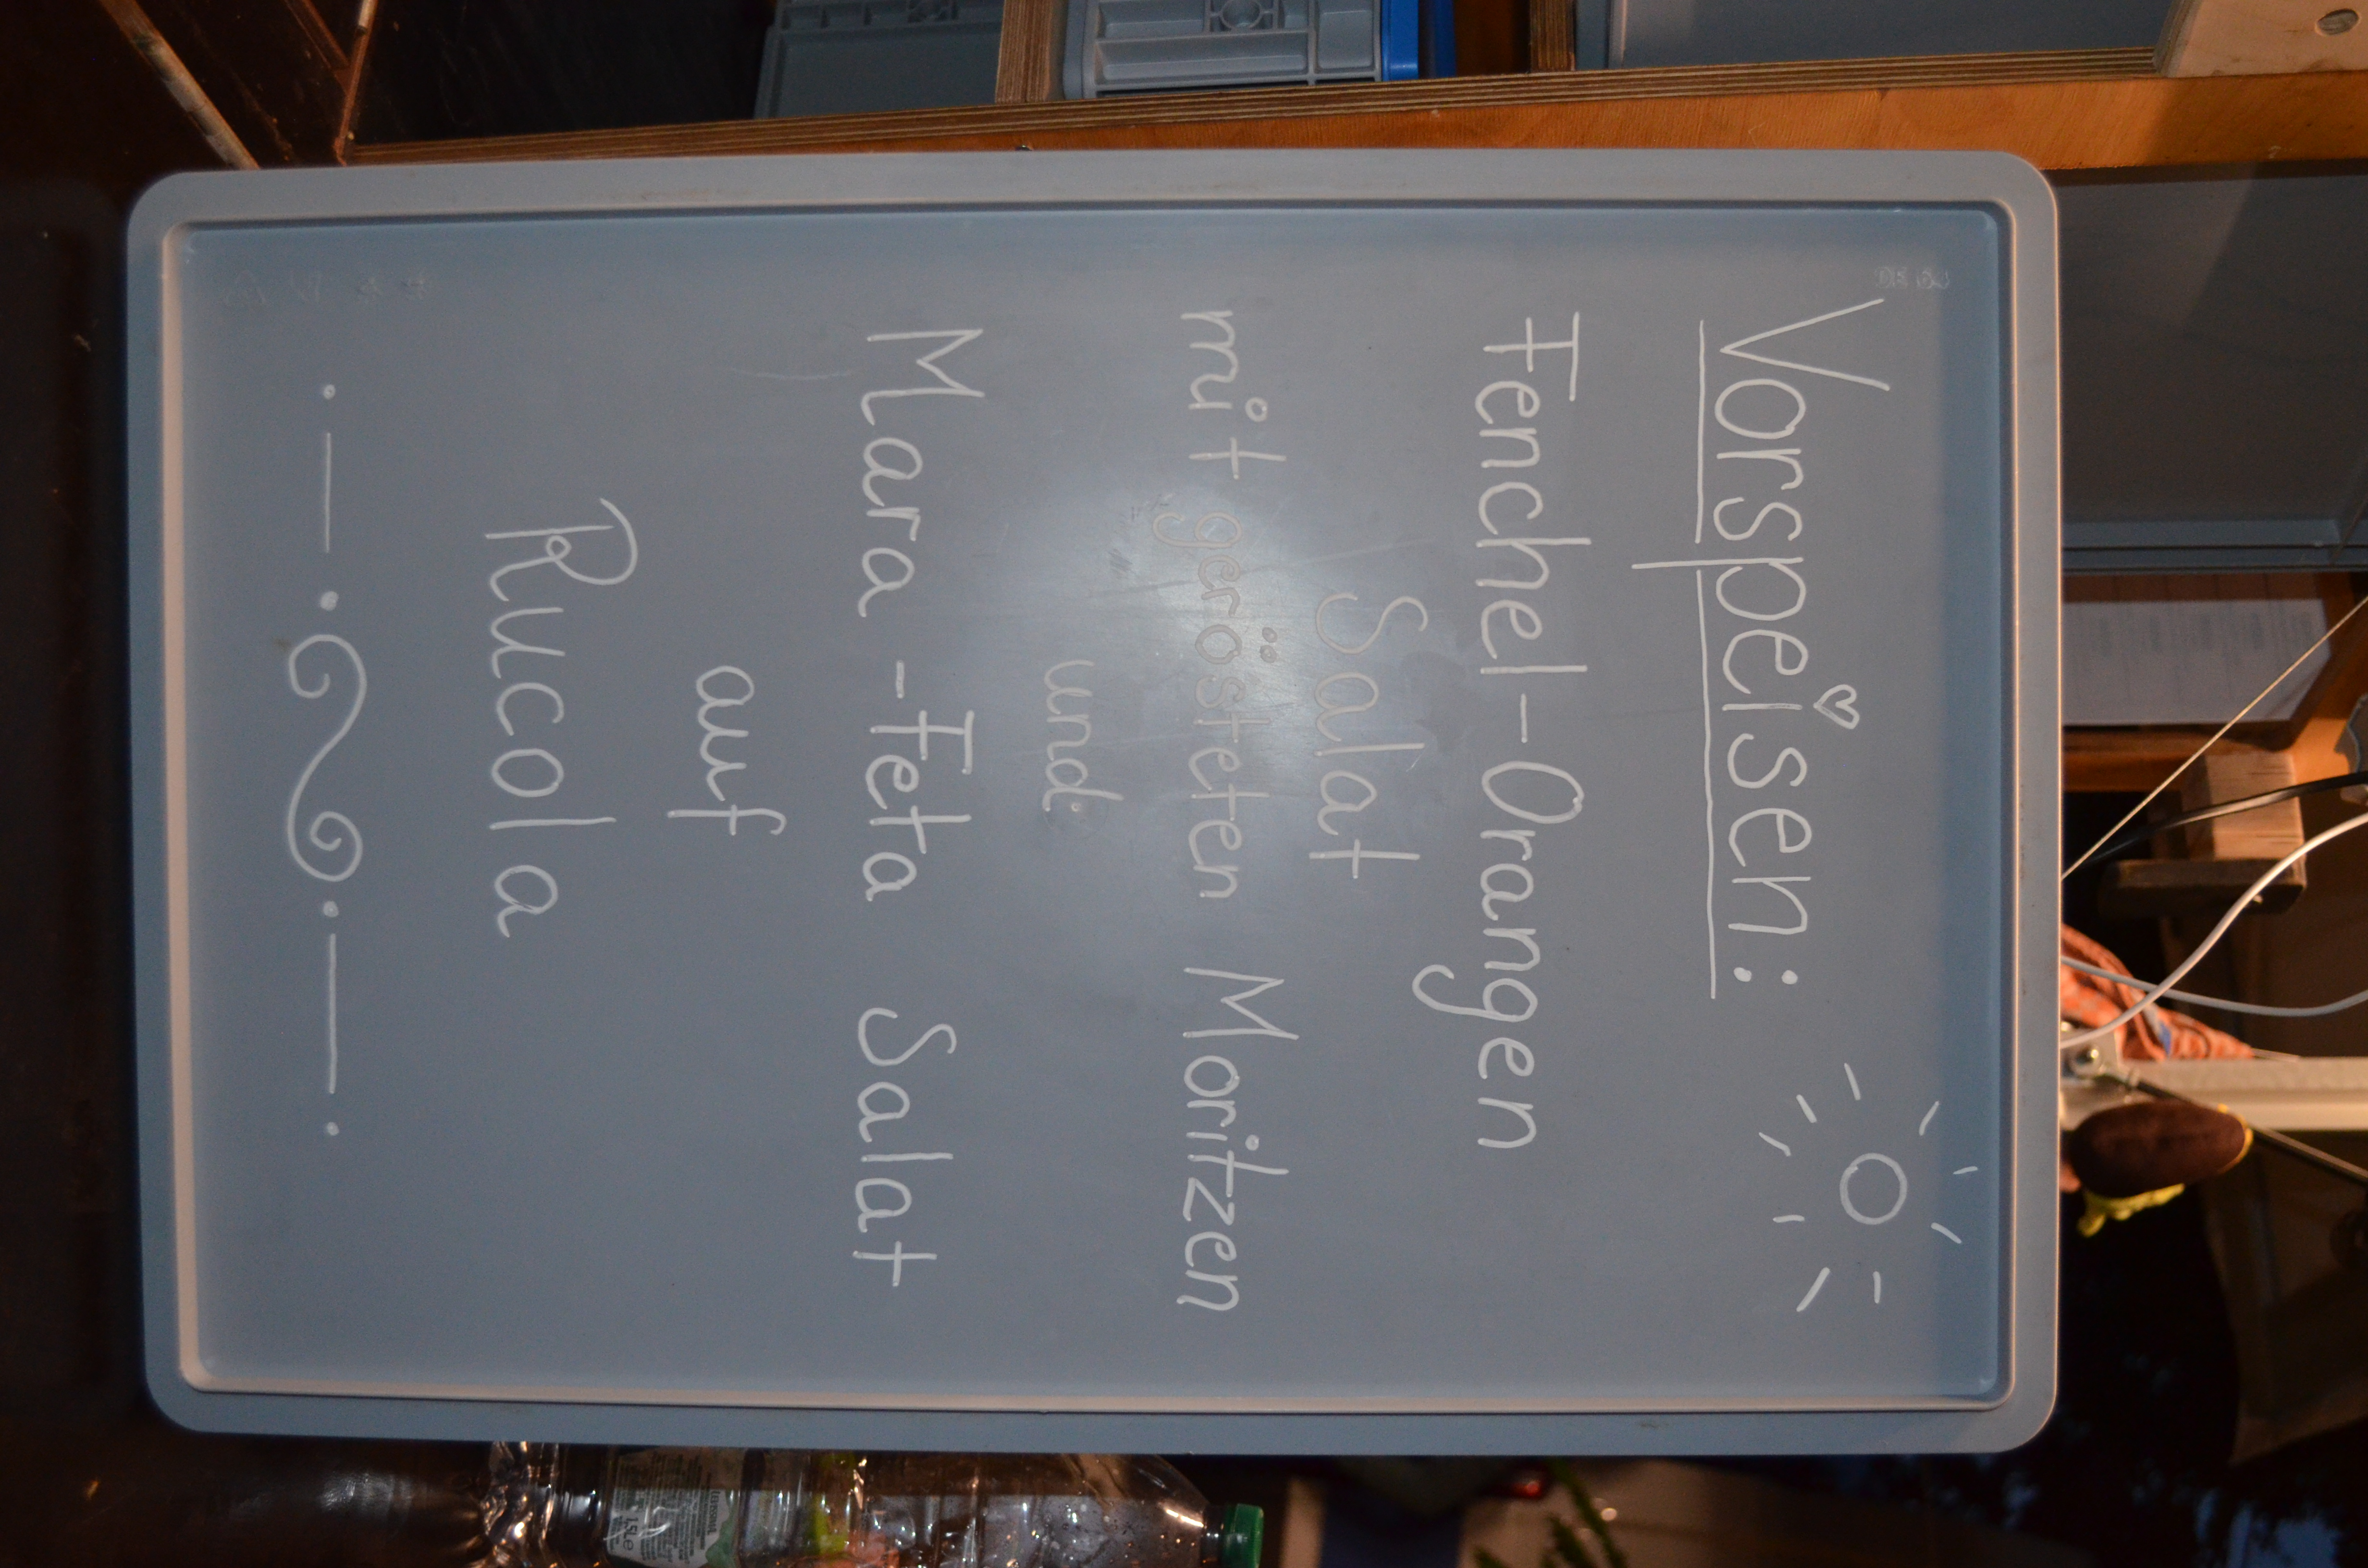 Vorspeisen:
Fenchel-Orangen
Salat
mit gerösteten Moritzen
und
Mara-Feta Salat
auf
Rucola